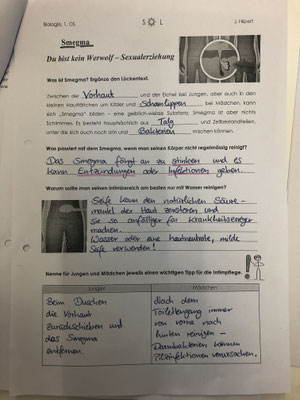 Biologie, 1. OS
S O L
J. Hilpert
Smegma
Du bist kein Werwolf – Sexualerziehung
Was ist Smegma? Ergänze den Lückentext.
Zwischen der Vorhaut und der Eichel bei Jungen, aber auch in den
kleinen Hautfältchen um Kitzler und Schamlippen bei Mädchen, kann
sich „Smegma" bilden – eine gelblich-weisse Substanz. Smegma ist aber nichts
Schlimmes. Es besteht hauptsächlich aus Talg und Zellbestandteilen,
unter die sich auch noch Urin und Bakterien mischen können.
Was passiert mit dem Smegma, wenn man seinen Körper nicht regelmässig reinigt?
Das Smegma fängt an zu stinken und es
kann Entzündungen oder Infektionen geben.
Warum sollte man seinen Intimbereich am besten nur mit Wasser reinigen?
Seife kann den natürlichen Säure-
mantel der Haut zerstören und
sie so anfälliger für Krankheitserreger
machen.
Wasser oder eine hautneutrale, milde
Seife verwenden!
Nenne für Jungen und Mädchen jeweils einen wichtigen Tipp für die Intimpflege.
Jungen
Mädchen
Beim Duschen
die Vorhaut
zurückschieben und
das Smegma
entfernen.
Nach dem
Toilettengang immer
von vorne nach
hinten reinigen –
Darmbakterien können
Pilzinfektionen verursachen.